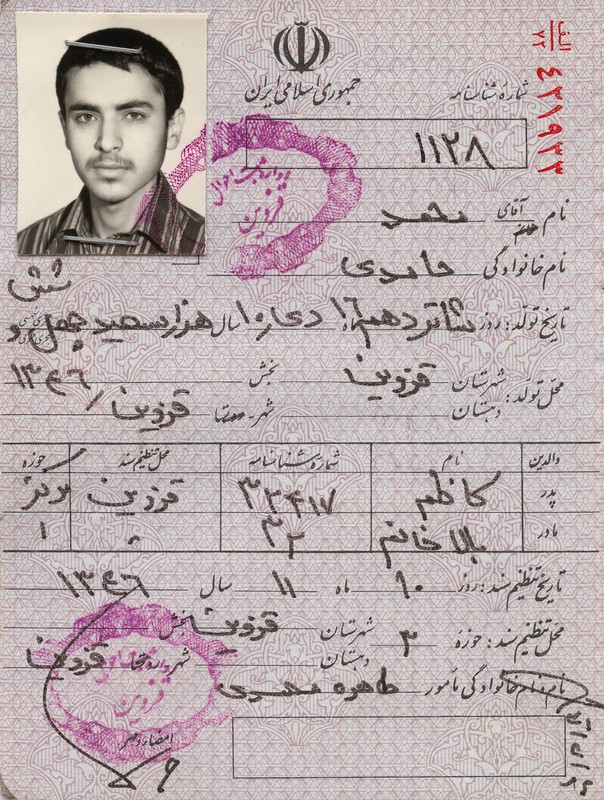 جمهوری اسلامی ایران
شمارهٔ شناسنامه
الف
۷۲
۴۲۱۹۳۳
۱۱۲۸
نام آقای خانم محمد
نام خانوادگی حامدی
تاریخ تولد: روز شانزدهم ۱۶ ماه دی ۱۰ سال هزار سیصد چهل و شش
۱۳۴۶
محل تولد: شهرستان قزوین بخش
دهستان شهر قزوین
والدین نام شمارهٔ شناسنامه محل تنظیم سند حوزه
پدر کاظم ۳۳۴۱۷ قزوین مرکز
مادر بالا خانم ۳۲ 〃 ۱
تاریخ تنظیم سند: روز ۱۰ ماه ۱۱ سال ۱۳۴۶
محل تنظیم سند: حوزه ۳ شهرستان قزوین بخش
دهستان شهر قزوین
نام و نام خانوادگی مأمور طاهره محمدی
امضاء و مهر
قزوین